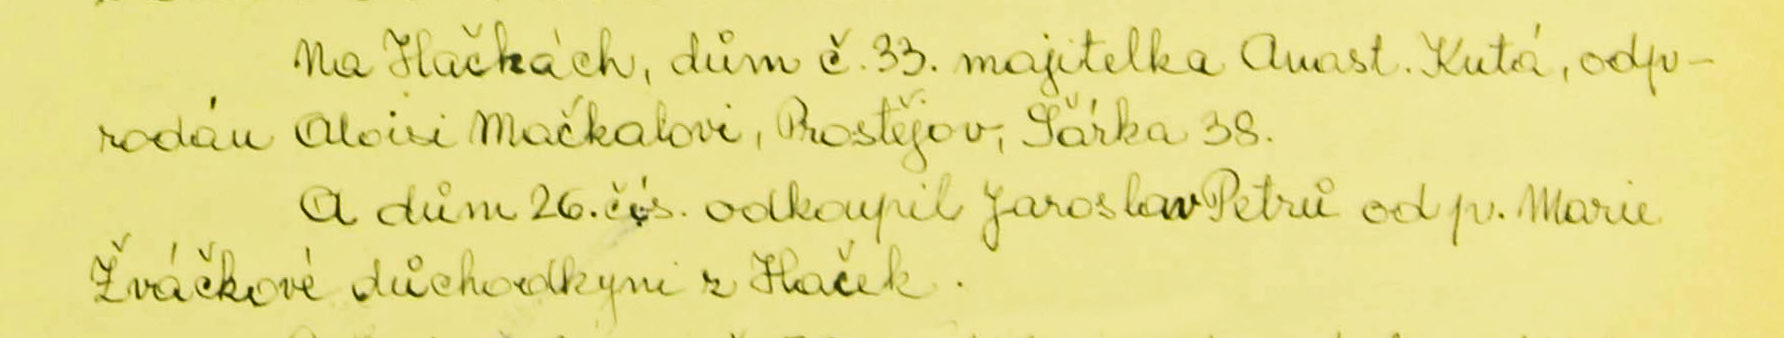 Na Hlačkách, dům č. 33. majitelka Anast. Kutá, odpr-
rodán Aloisi Mačkalovi, Prostějov, Šárka 38.
A dům 26. čís. odkoupil Jaroslav Petrů od p. Marie
Žváčkové důchodkyni z Hlaček.